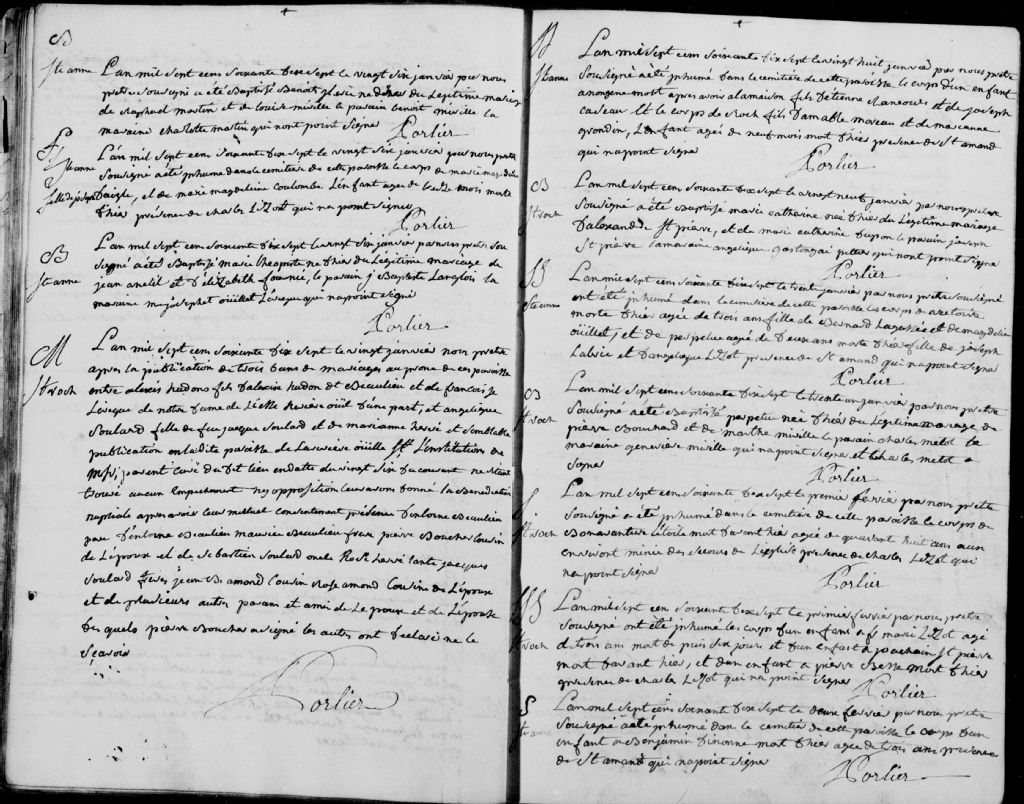 B
Ste anne
L'an mil sept cens soixante dixe sept le vingt six janvier par nous
pretre soussigné a été Baptisé Benoît né d hier du Legitime mariage
de Raphael martin et de louise miville le parain benoit miville la
maraine charlotte martin qui nont point signé
Porlier
S
Ste anne
L'an mil sept cens soixante dixe sept le vingt six janvier par nous pretre
soussigné a été inhumé dans le cimetière de cette paroisse le corps de marie magdeleine
fille de joseph Daigle, et de marie magdeleine Coulombe L'enfant agée de treize mois morte
d'hier présence de charles Lizot qui na point signé
Porlier
B
Ste anne
L'an mil sept cens soixante dixe sept le vingt six janvier par nous pretre sou
signé a été Baptisé marie theopiste né d'hier du Légitime mariage de
jean anctil et d'Elizabeth fournié, le parain j Baptiste Langlois la
maraine m josephet oüellet Lévêque qui na point signé
Porlier
M
St roch
L'an mil sept cens soixante dixe sept le vingt janvier nous pretre
apres la publication de trois bans de mariages au prone de ces paroisse
entre alexis hudons fils d'alexis hudon de Beaulieu et de francoise
Lévêque de notre dame de Liesse Rivière oüel d'une part, et angelique
Soulard fille de feu jacque Soulard et de marianne hervé et semblable
publication en la dite paroisse de La rivière oüelle St L'institution de
Mr parent curé du dit lieu en datte du vingt six du courant ne s'étant
trouvé aucun Empechement ny opposition leur avons donné la Benediction
nuptiale apres avoir leur mutuel consentement présence d'antoine Beaulieu
pere d'antoine Beaulieu maurice Beaulieu frere pierre Boucher Cousin
de L'époux et de Sebastien Soulard oncle Rose hervé tante jacques
Soulard freres jean B. amond Cousin Rose amond Cousine de L'épouse
et de plusieurs autres parans et amis de L'epoux et de L'épouse
des quels pierre Boucher a signé les autres ont declaré ne le
sçavoir
Porlier
SS
Ste anne
L'an mil sept cens soixante dixe sept le vingt huit janvier par nous pretre
soussigné a été inhumé dans le cimetière de cette paroisse le corps d'un enfant
anonyme mort apres avoir a la maison fils d'Etienne et de joseph
Cadeau Et le corps de Roch fils d'amable moreau et de marianne
grondin, L'enfant agé de neuf mois mort d'hier présence de St amand
qui na point signé
Porlier
B
St roch
L'an mil sept cens soixante dixe sept le vingt neuf janvier par nous pretre
soussigné a été Baptisé marie catherine née d'hier du Légitime mariage
d'alexandre St pierre, et de marie catherine Dupon le parain joseph
St pierre la maraine angelique gastonguai pelletier qui nont point signé
Porlier
SS
Ste anne
L'an mil sept cens soixante dixe sept le trente janvier par nous pretre soussigné
ont été inhumé dans le cimetière de cette paroisse les corps de
morte d'hier agée de trois ans fille de Bernard Lagassée et de magdeleine
oüellet, et de perpetue agée de deux ans morte d'hier fille de joseph
Labrie et d'angelique Lizot présence de St amand qui na point signé
Porlier
B
St roch
L'an mil sept cens soixante dixe sept le trente un janvier par nous pretre
soussigné a été Baptisé perpetue née d'hier du Légitime mariage de
pierre Bouchard et de marthe miville le parain charles metot la
maraine genevieve miville qui na point signé et charles metot a
signé
Porlier
S
St roch
L'an mil sept cens soixante dixe sept le premier fevrié par nous pretre
soussigné a été inhumé dans le cimetière de cette paroisse le corps de
Bonaventure L'étoile mort d'avant hier agée de quarante huit ans aiant
en servant munie des secours de L'eglise présence de charles Lizot qui
na point signé
Porlier
SSS
St roch
L'an mil sept cens soixante dixe sept le premier fevrié par nous pretre
soussigné ont été inhumé les corps d'un enfant a marie Lizot agé
de trois ans mort de puis six jours et d'un enfant a joachain St pierre
mort d'avant hier, et d'un enfant a pierre Besse mort d'hier
présence de charles Lizot qui na point signé
Porlier
S
Ste anne
L'an mil sept cens soixante dixe sept le deux fevrié par nous pretre
soussigné a été inhumé dans le cimetière de cette paroisse le corps d'un
enfant a Benjamin Dionne mort d'hier agée de trois ans présence
de St amand qui na point signé
Porlier